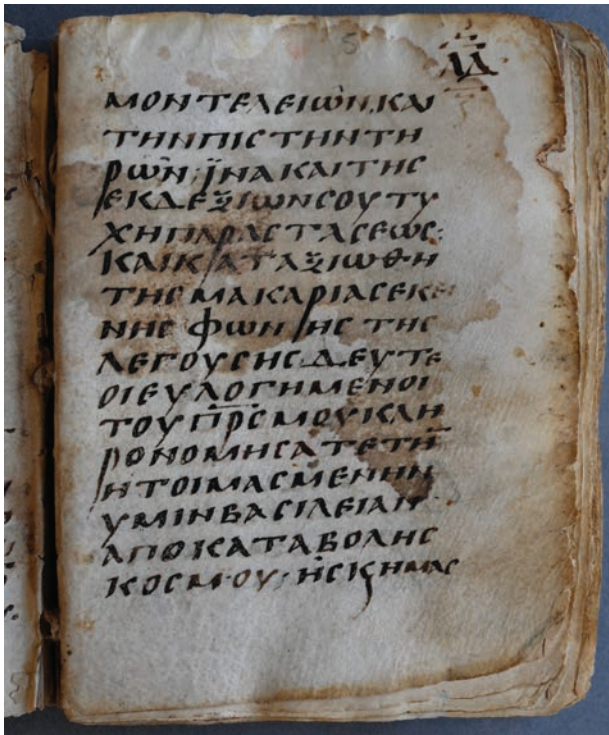 5
ΛΔ
ΜΟΝ ΤΕΛΕΙΩΝ. ΚΑΙ
ΤΗΝ ΠΙΣΤΗΝ ΤΗ
ΡΩΝ· ΪΝΑ ΚΑΙ ΤΗΣ
ΕΚ ΔΕΞΙΩΝ ΣΟΥ ΤΥ
ΧΗ ΠΑΡΑΣΤΑΣΕΩΣ:
ΚΑΙ ΚΑΤΑΞΙΩΘΗ
ΤΗΣ ΜΑΚΑΡΙΑΣ ΕΚΕΙ
ΝΗΣ ΦΩΝΗΣ ΤΗΣ
ΛΕΓΟΥΣΗΣ ΔΕΥΤΕ
ΟΙ ΕΥΛΟΓΗΜΕΝΟΙ
ΤΟΥ Π̅Ρ̅Σ̅ ΜΟΥ ΚΛΗ
ΡΟΝΟΜΗΣΑΤΕ ΤΗ̅
ΗΤΟΙΜΑΣΜΕΝΗΝ
ΥΜΙΝ ΒΑΣΙΛΕΙΑΝ
ΑΠΟ ΚΑΤΑΒΟΛΗΣ
ΚΟΣΜΟΥ· ΗΣ Κ ΗΜΑΣ